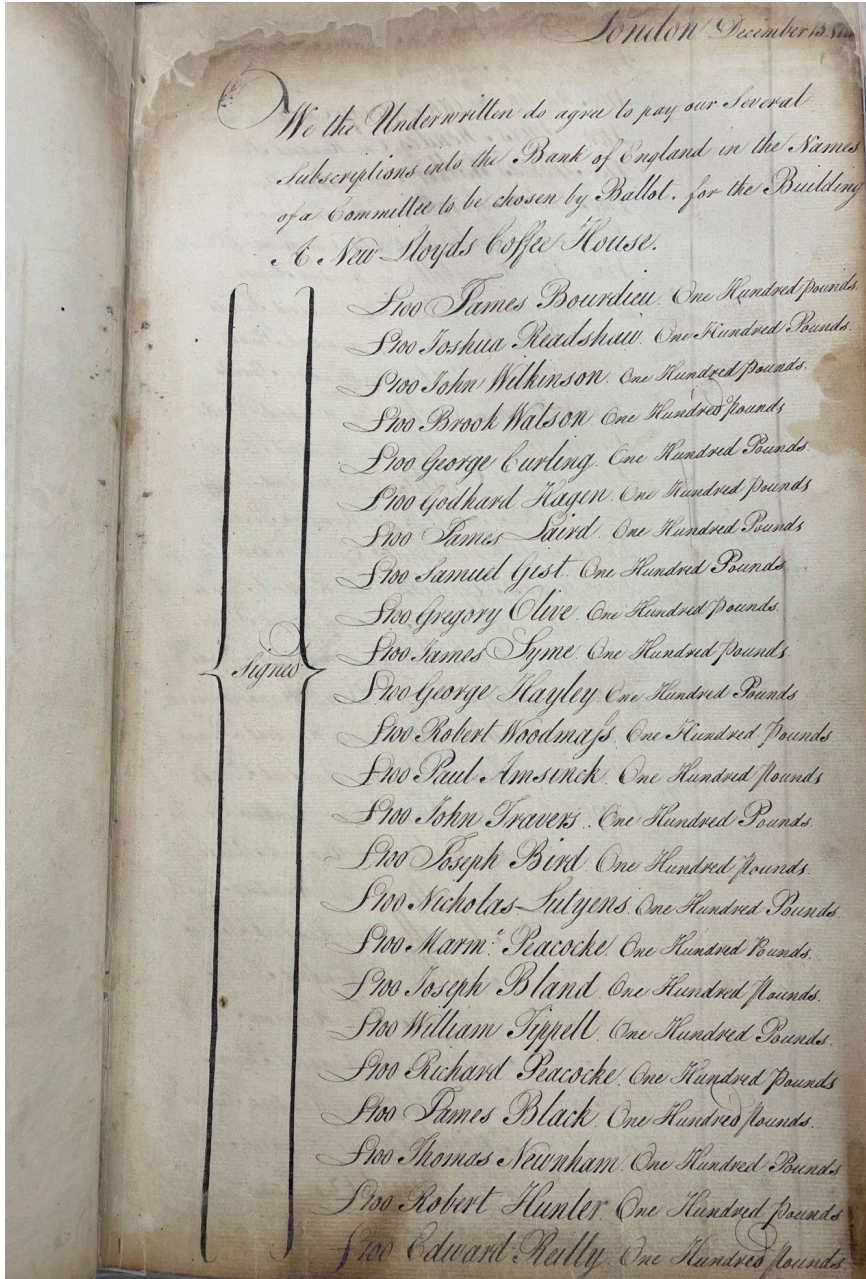 London December 13.
We the Underwritten do agree to pay our Several
Subscriptions into the Bank of England in the Names
of a Committee to be chosen by Ballot. for the Building
A New Lloyds Coffee House.
£100 James Bourdieu. One Hundred pounds.
£100 Joshua Readshaw. One Hundred Pounds.
£100 John Wilkinson. One Hundred pounds.
£100 Brook Watson One Hundred pounds
£100 George Curling. One Hundred Pounds.
£100 Godhard Hagen. One Hundred pounds
£100 James Laird. One Hundred Pounds
£100 Samuel Gist. One Hundred Pounds
£100 Gregory Olive. One Hundred pounds.
£100 James Syme. One Hundred pounds
Signed
£100 George Hayley One Hundred Pounds
£100 Robert Woodmaſs. One Hundred pounds
£100 Paul Amsinck. One Hundred pounds
£100 John Travers. One Hundred Pounds
£100 Joseph Bird One Hundred pounds.
£100 Nicholas Lutyens. One Hundred Pounds.
£100 Marm.e Peacocke. One Hundred Pounds.
£100 Joseph Bland One Hundred pounds.
£100 William Tippell. One Hundred Pounds.
£100 Richard Peacocke. One Hundred pounds
£100 James Black. One Hundred pounds.
£100 Thomas Newnham. One Hundred Pounds
£100 Robert Hunter. One Hundred pounds
£100 Edward Reilly. One Hundred pounds.